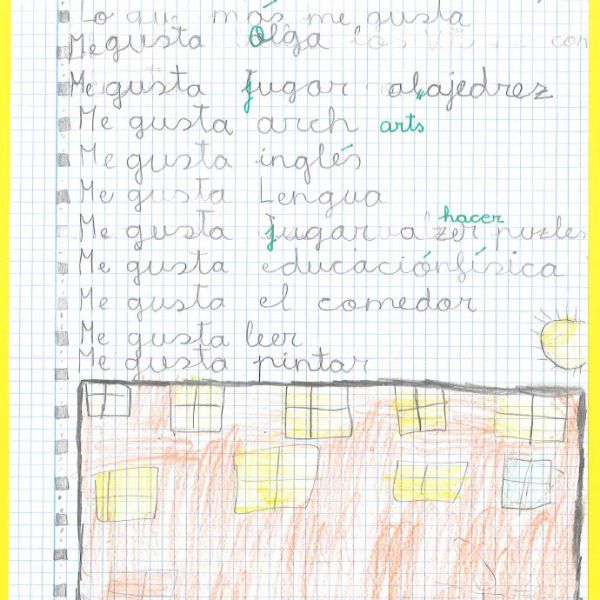 Lo que más me gusta
Me gusta Olga
Me gusta jugar al ajedrez
Me gusta arch arts
Me gusta inglés
Me gusta Lengua
hacer
Me gusta jugar a zer puzles
Me gusta educación física
Me gusta el comedor
Me gusta leer
Me gusta pintar